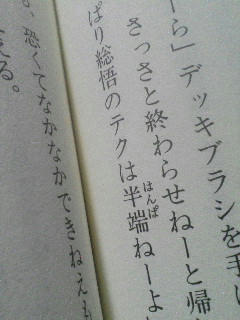 ーら」デッキブラシを手に
さっさと終わらせねーと帰
ぱり総悟のテクは半端ねーよ
はんぱ
、恐くてなかなかできねえも
える。